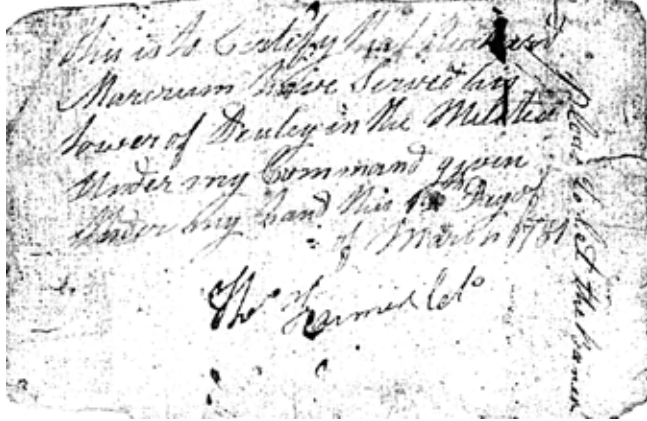 This is to CertifSy that
Marcrum have Served his
tower of Deuley in the Militea
Under my Command given
Under my hand this Day of
of March 1781
Thos Farmer Colo
the